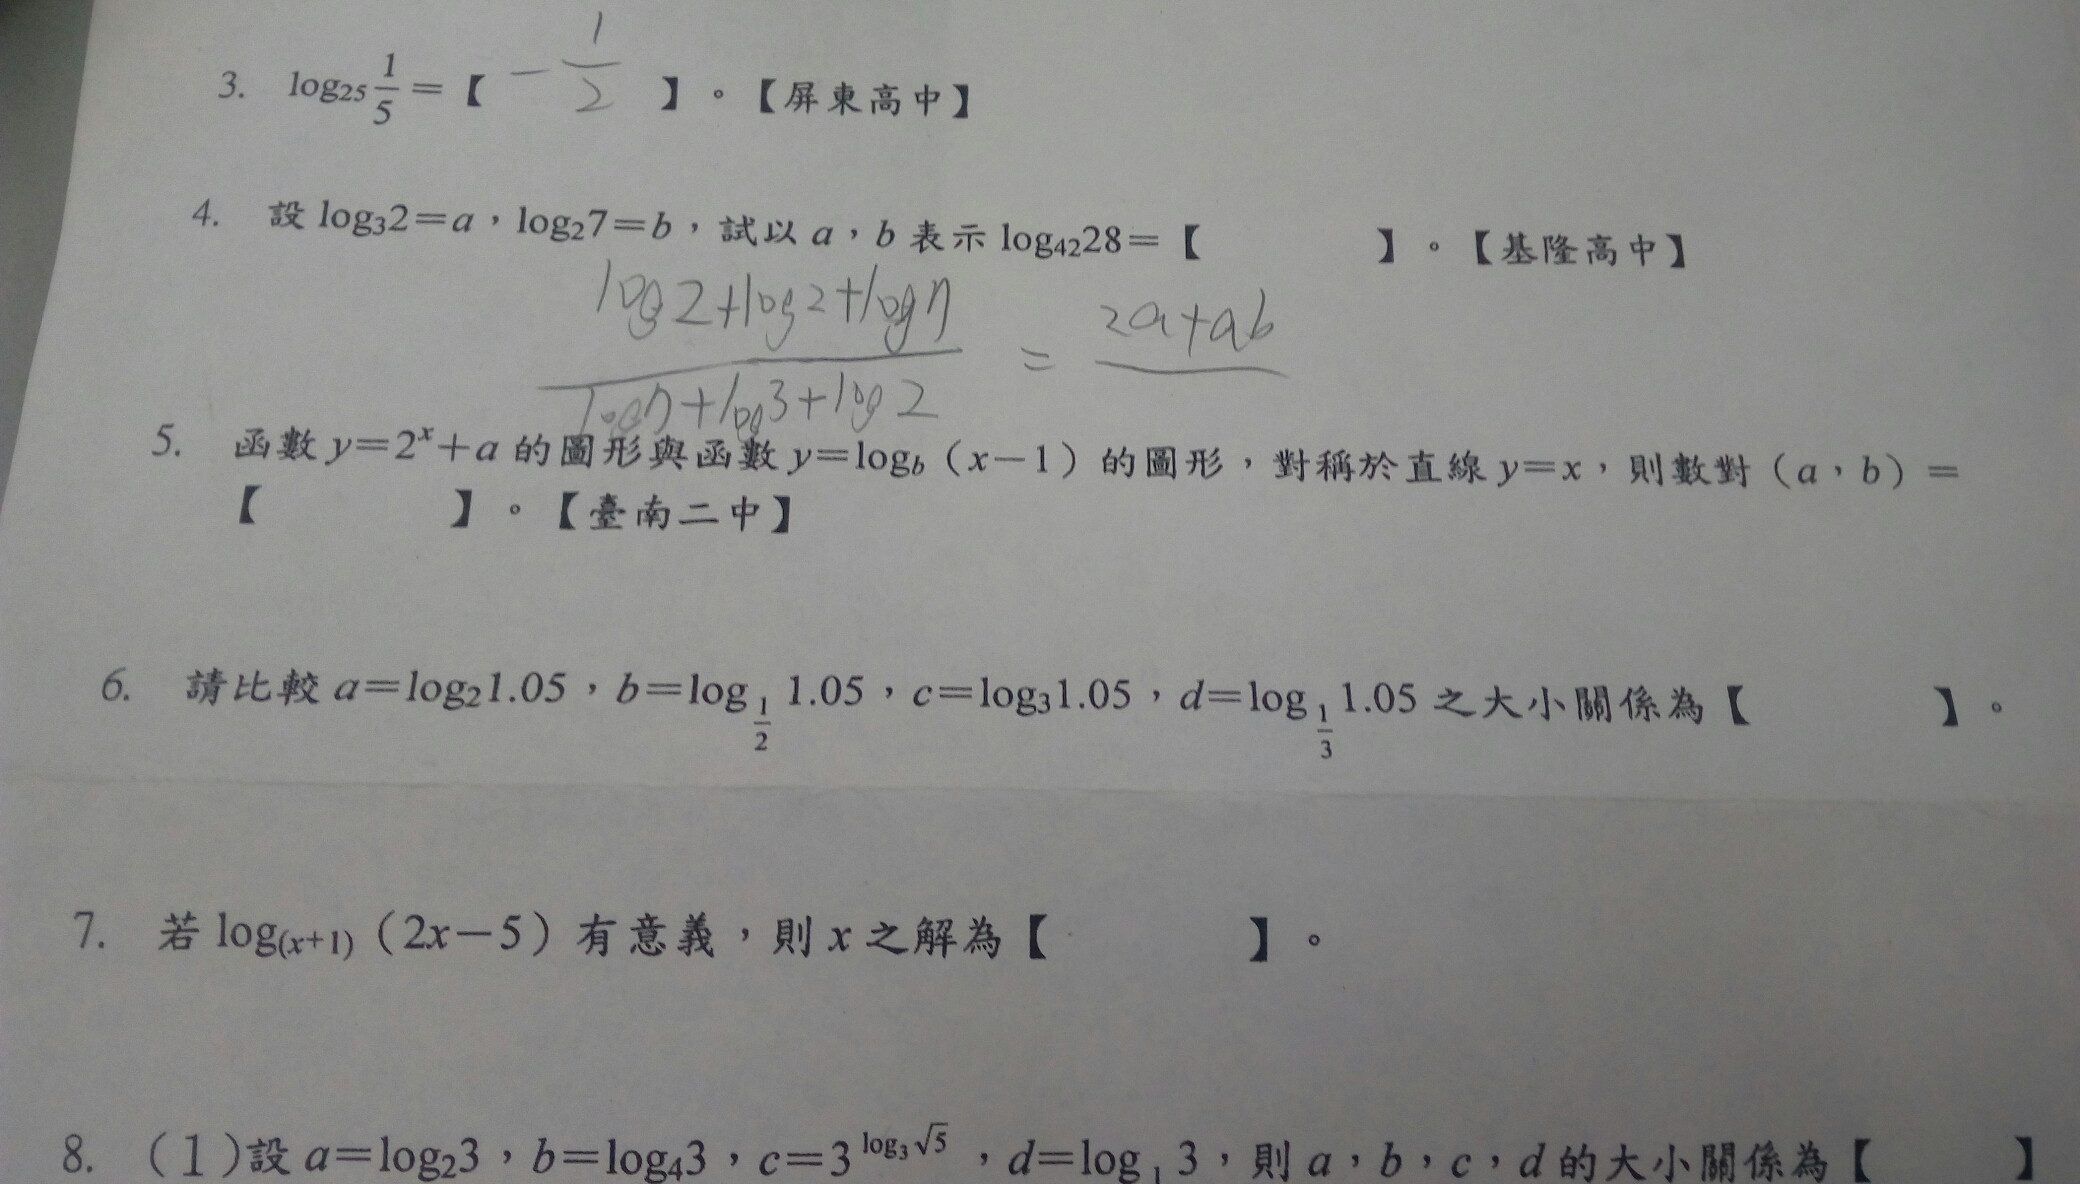 3. log₂₅ 1/5 =【 -1/2 】。【屏東高中】
4. 設 log₃2=a，log₂7=b，試以 a，b 表示 log₄₂28=【 】。【基隆高中】
log2+log2+log7 / log7+log3+log2 = 2a+ab /
5. 函數 y=2ˣ+a 的圖形與函數 y=log_b（x−1）的圖形，對稱於直線 y=x，則數對（a，b）=
【 】。【臺南二中】
6. 請比較 a=log₂1.05，b=log_{1/2} 1.05，c=log₃1.05，d=log_{1/3} 1.05 之大小關係為【 】。
7. 若 log₍ₓ₊₁₎（2x−5）有意義，則 x 之解為【 】。
8. (1)設 a=log₂3，b=log₄3，c=3^{log₃√5}，d=log 1 3，則 a，b，c，d 的大小關係為【 】